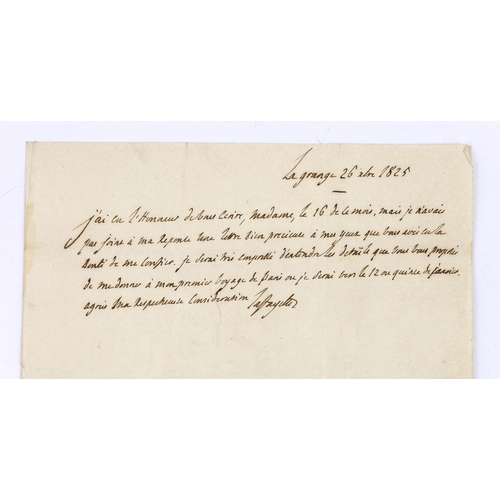 La grange 26 xbre 1825
j'ai eu l'Honneur de vous Ecrire, Madame, le 16 de ce mois, mais je n'avais
pas joint à ma Reponse une lettre bien precieuse à mes yeux que vous avés eu la
bonté de me confier. je serai très empressé d'entendre les details que vous vous proposés
de me donner à mon premier voyage de Paris ou je serai vers le 12 ou quinze de janvier.
agreés ma Respectueuse Consideration Lafayette